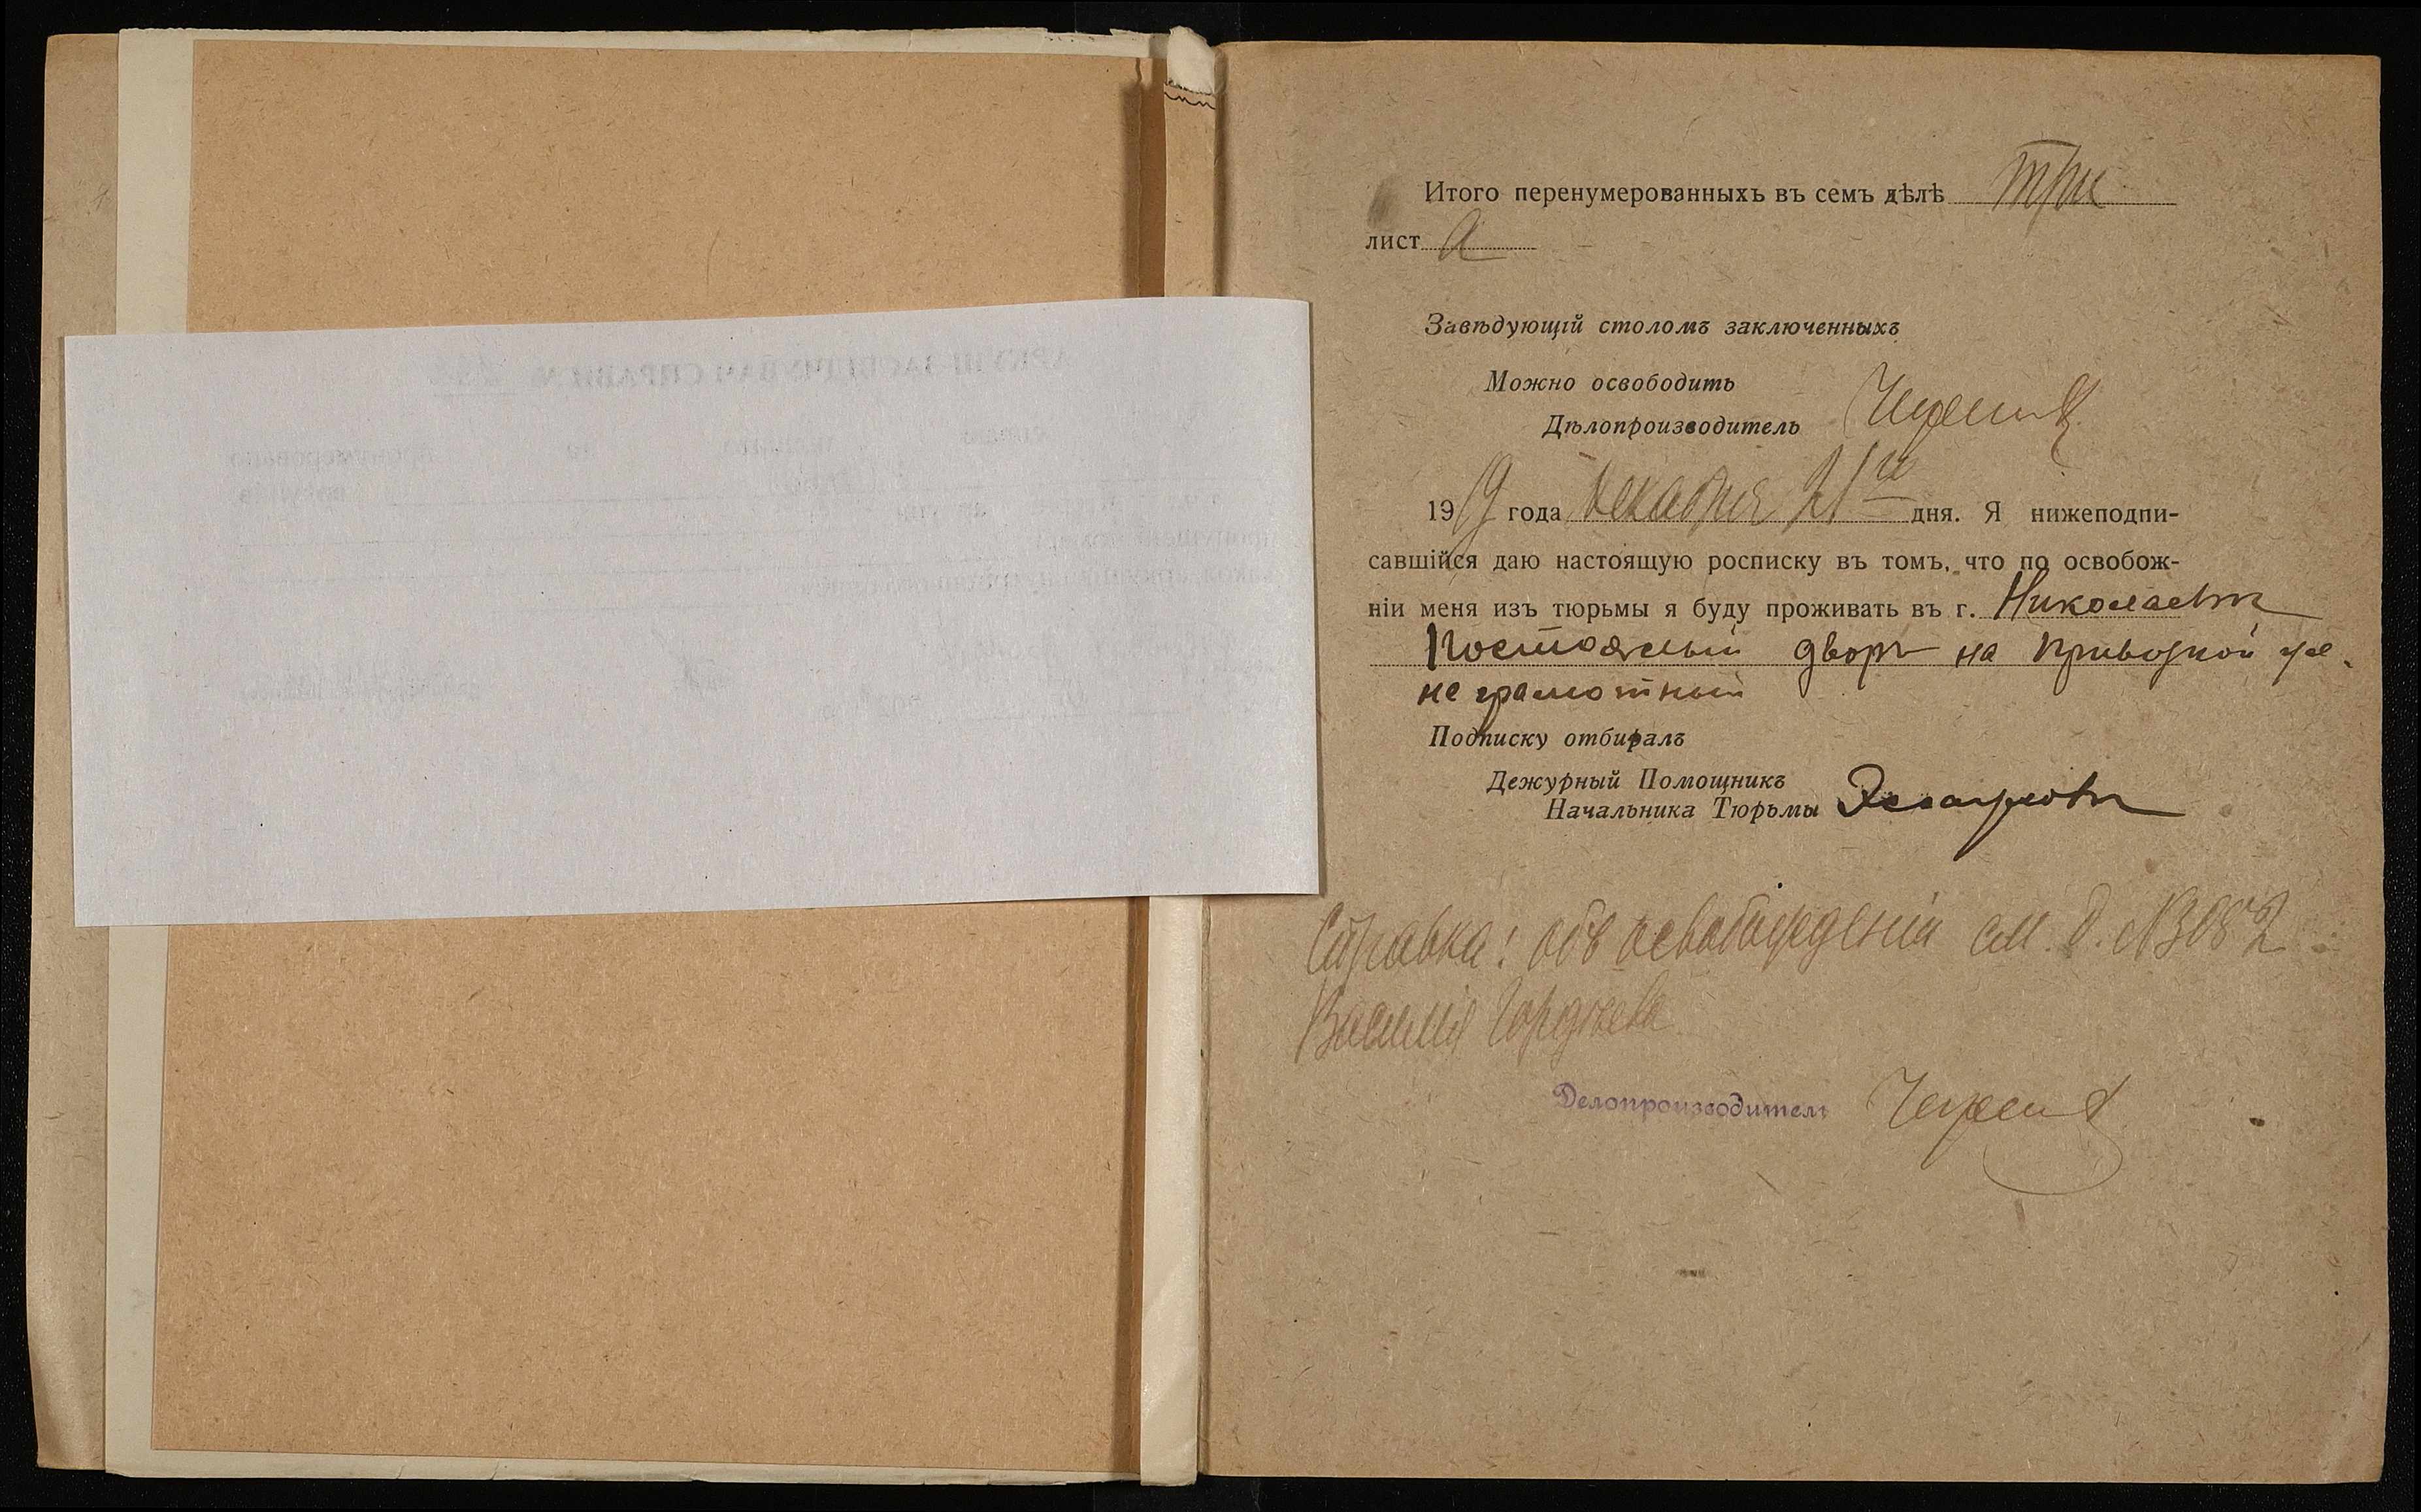 Итого перенумерованныхъ въ семъ дѣлѣ три
лист а
Завѣдующій столомъ заключенныхъ
Можно освободить
Дѣлопроизводитель
1919 года декабря 21го дня. Я нижеподпи-
савшійся даю настоящую росписку въ томъ, что по освобож-
ніи меня изъ тюрьмы я буду проживать въ г. Николаевѣ
Постоялый дворъ на Привозной ул.
не грамотный
Подписку отбиралъ
Дежурный Помощникъ
Начальника Тюрьмы
Справка: объ освобожденіи см. д. №3082
Василія Гордѣева
Делопроизводитель